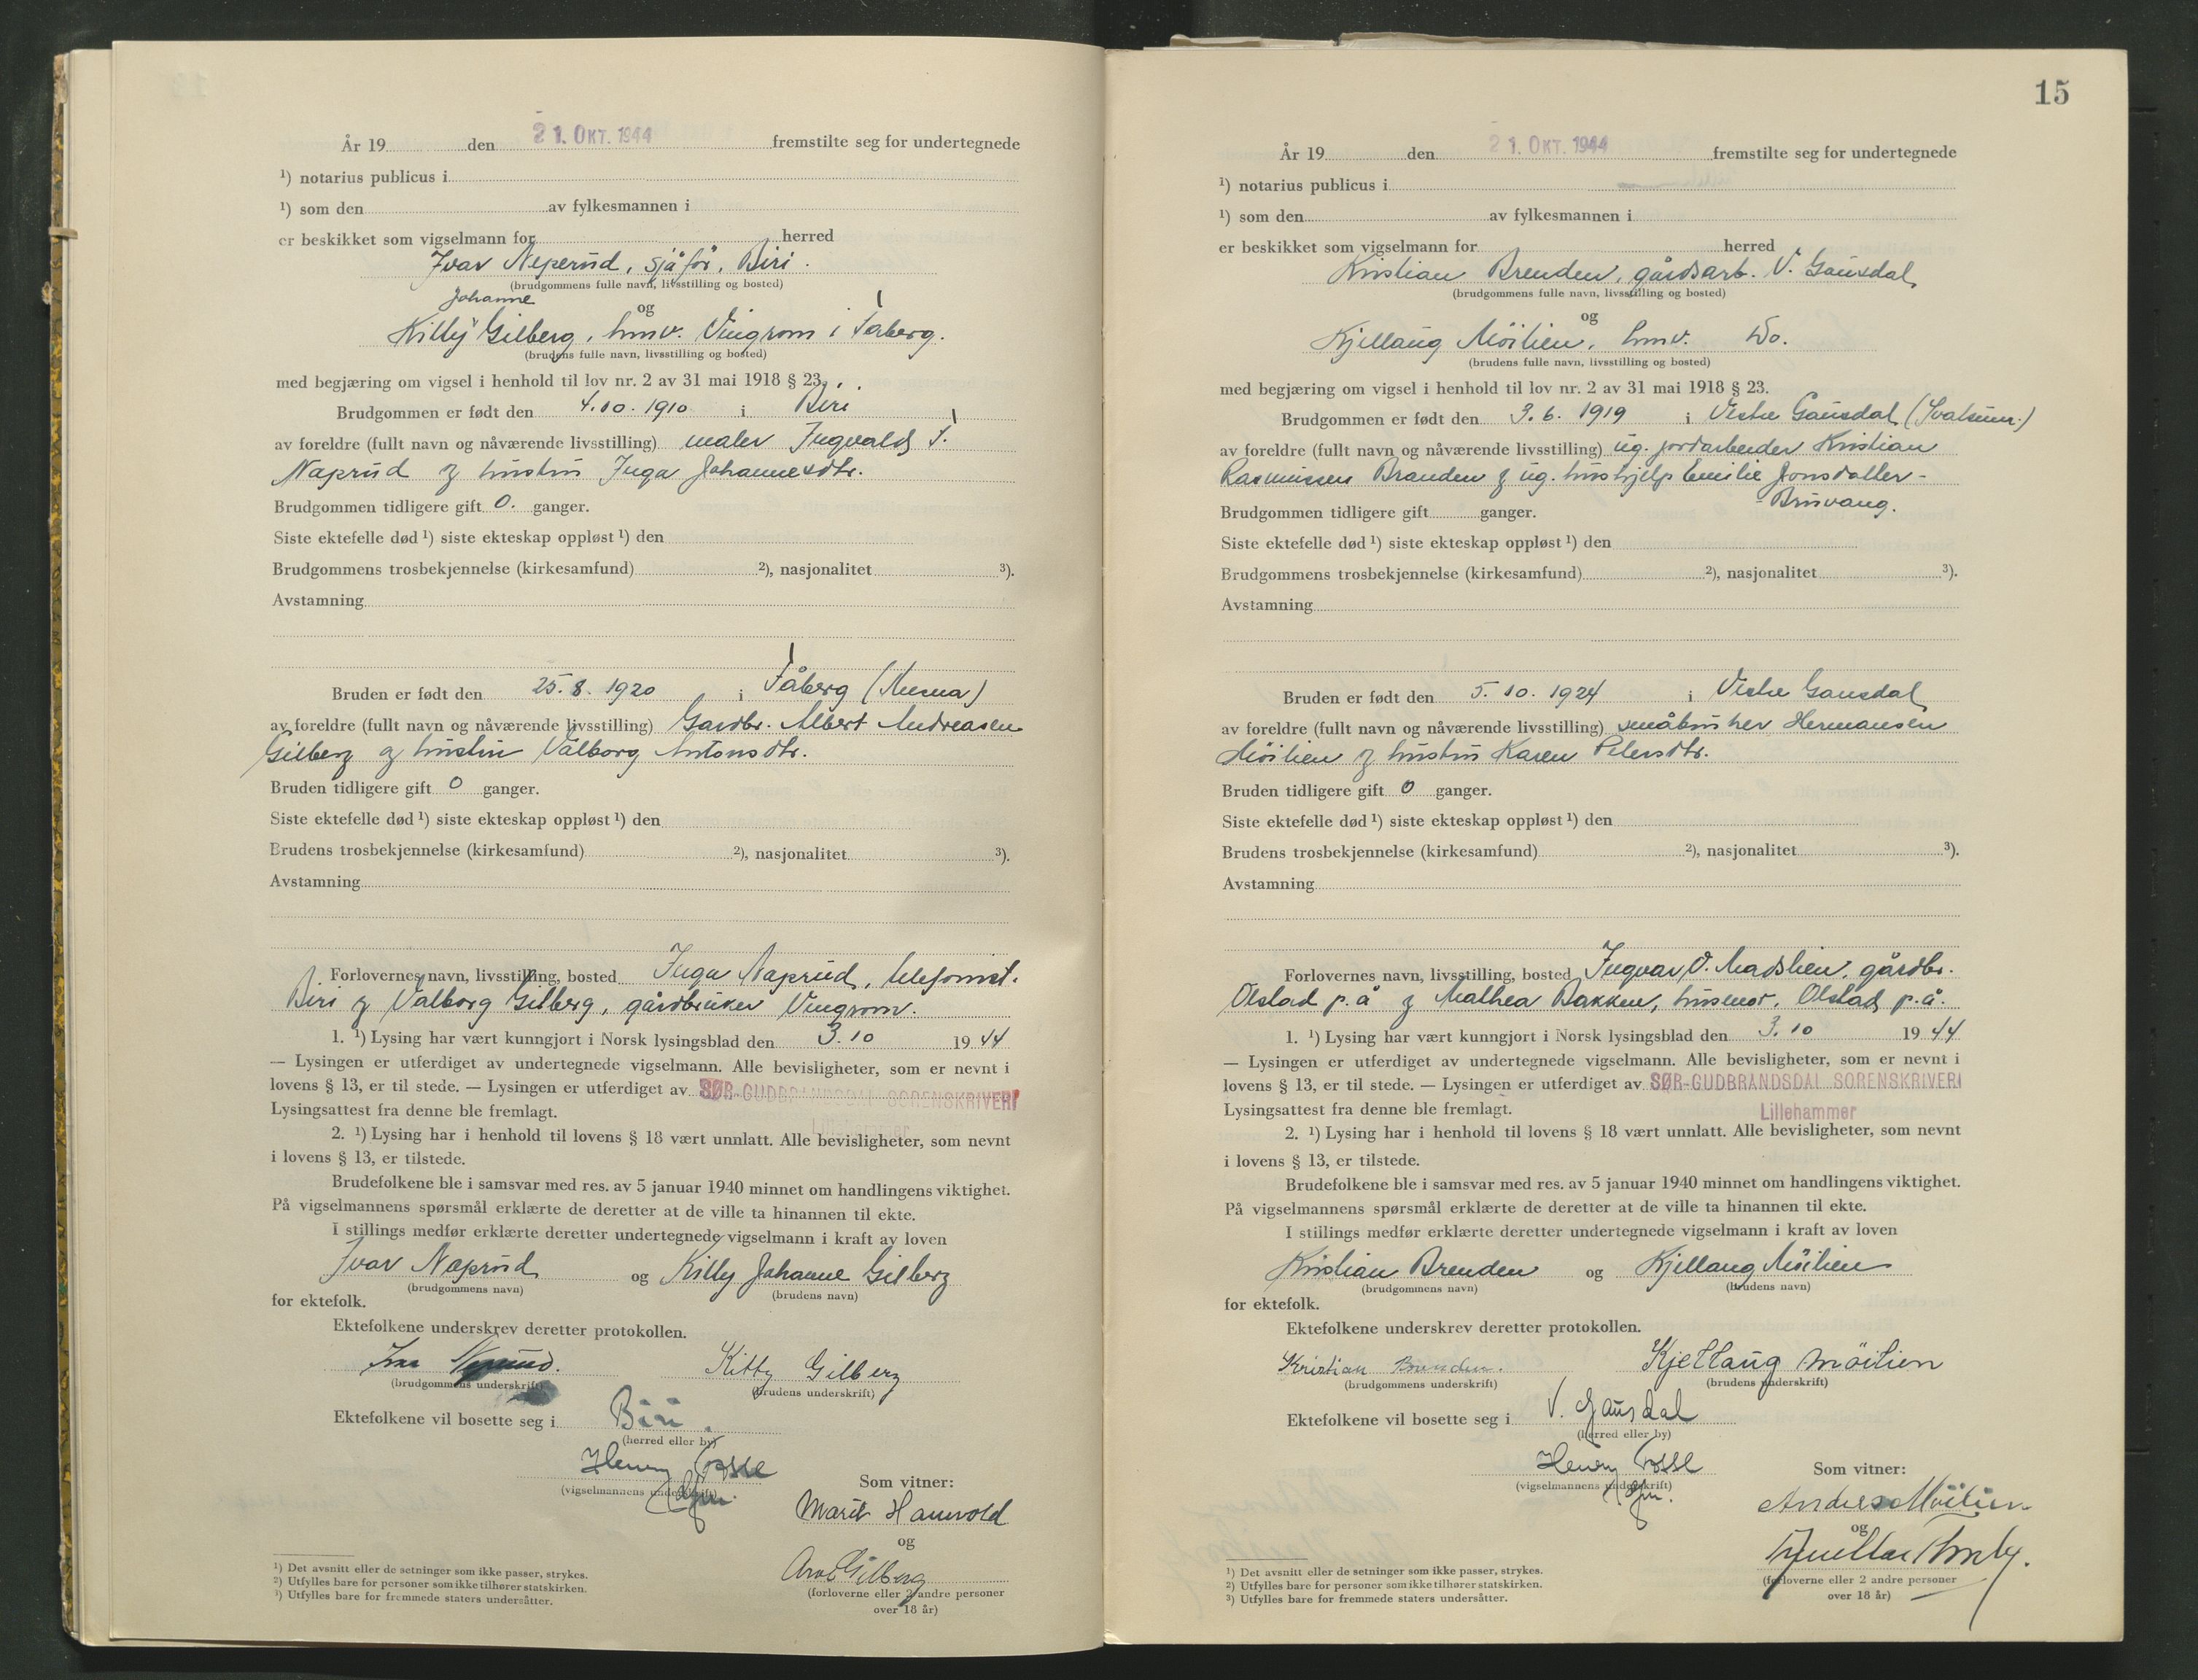 År 19 den 21. OKT. 1944 fremstilte seg for undertegnede
¹) notarius publicus i
¹) som den av fylkesmannen i
er beskikket som vigselmann for herred
Ivar Neperud, sjåfør, Biri.
(brudgommens fulle navn, livsstilling og bosted)
Johanne
og
Killy Gilberg, hmv. Vingrom i Faberg.
(brudens fulle navn, livsstilling og bosted)
med begjæring om vigsel i henhold til lov nr. 2 av 31 mai 1918 § 23.
Brudgommen er født den 4.10.1910 i Biri
av foreldre (fullt navn og nåværende livsstilling) maler Ingvald
Naprud og hustru Inga Johannesdtr.
Brudgommen tidligere gift 0. ganger.
Siste ektefelle død ¹) siste ekteskap oppløst ¹) den
Brudgommens trosbekjennelse (kirkesamfund) ²), nasjonalitet ³).
Avstamning
Bruden er født den 25.8.1920 i Fåberg (Mesna)
av foreldre (fullt navn og nåværende livsstilling) Gardbr. Albert Andreasen
Gilberg og hustru Valborg Antonsdtr.
Bruden tidligere gift 0 ganger.
Siste ektefelle død ¹) siste ekteskap oppløst ¹) den
Brudens trosbekjennelse (kirkesamfund) ²), nasjonalitet ³).
Avstamning
Forlovernes navn, livsstilling, bosted Inga Naprud, telefonist.
Biri og Valborg Gilberg, gårdbruker Vingrom.
1. ¹) Lysing har vært kunngjort i Norsk lysingsblad den 3.10 1944
— Lysingen er utferdiget av undertegnede vigselmann. Alle bevisligheter, som er nevnt i
lovens § 13, er til stede. — Lysingen er utferdiget av SØR-GUDBRANDSDAL SORENSKRIVERI
Lillehammer
Lysingsattest fra denne ble fremlagt.
2. ¹) Lysing har i henhold til lovens § 18 vært unnlatt. Alle bevisligheter, som nevnt
i lovens § 13, er tilstede.
Brudefolkene ble i samsvar med res. av 5 januar 1940 minnet om handlingens viktighet.
På vigselmannens spørsmål erklærte de deretter at de ville ta hinannen til ekte.
I stillings medfør erklærte deretter undertegnede vigselmann i kraft av loven
Ivar Naprud og Killy Johanne Gilberg
(brudgommens navn) (brudens navn)
for ektefolk.
Ektefolkene underskrev deretter protokollen.
Kitty Gilberg
(brudgommens underskrift) (brudens underskrift)
Ektefolkene vil bosette seg i Biri.
(herred eller by)
Henry
(vigselmannens underskrift)
Som vitner:
Marit Haugvold
og
Gilberg
(forloverne eller 2 andre personer
over 18 år)
¹) Det avsnitt eller de setninger som ikke passer, strykes.
²) Utfylles bare for personer som ikke tilhører statskirken.
³) Utfylles bare for fremmede staters undersåtter.
15
År 19 den 21. OKT. 1944 fremstilte seg for undertegnede
¹) notarius publicus i
¹) som den av fylkesmannen i
er beskikket som vigselmann for herred
Kristian Brenden, gårdsarb. V. Gausdal
(brudgommens fulle navn, livsstilling og bosted)
og
Kjellaug Möilien, hmv. Do.
(brudens fulle navn, livsstilling og bosted)
med begjæring om vigsel i henhold til lov nr. 2 av 31 mai 1918 § 23.
Brudgommen er født den 3.6.1919 i Vestre Gausdal (Svatsum.)
av foreldre (fullt navn og nåværende livsstilling) ug. jordarbeider Kristian
Rasmussen Branden og ug. hushjelp Emilie Jonsdatter-
-Bruvang.
Brudgommen tidligere gift ganger.
Siste ektefelle død ¹) siste ekteskap oppløst ¹) den
Brudgommens trosbekjennelse (kirkesamfund) ²), nasjonalitet ³).
Avstamning
Bruden er født den 5.10.1924 i Vestre Gausdal
av foreldre (fullt navn og nåværende livsstilling) Hermansen
Möilien og hustru Karen Petersdtr.
Bruden tidligere gift 0 ganger.
Siste ektefelle død ¹) siste ekteskap oppløst ¹) den
Brudens trosbekjennelse (kirkesamfund) ²), nasjonalitet ³).
Avstamning
Forlovernes navn, livsstilling, bosted Ingvar O. Madslien, gårdbr.
Olstad p.å og Mathea Bakken, husmor, Olstad p.å.
1. ¹) Lysing har vært kunngjort i Norsk lysingsblad den 3.10 1944
— Lysingen er utferdiget av undertegnede vigselmann. Alle bevisligheter, som er nevnt i
lovens § 13, er til stede. — Lysingen er utferdiget av SØR-GUDBRANDSDAL SORENSKRIVERI
Lysingsattest fra denne ble fremlagt. Lillehammer
2. ¹) Lysing har i henhold til lovens § 18 vært unnlatt. Alle bevisligheter, som nevnt
i lovens § 13, er tilstede.
Brudefolkene ble i samsvar med res. av 5 januar 1940 minnet om handlingens viktighet.
På vigselmannens spørsmål erklærte de deretter at de ville ta hinannen til ekte.
I stillings medfør erklærte deretter undertegnede vigselmann i kraft av loven
Kristian Brenden og Kjellaug Möilien
(brudgommens navn) (brudens navn)
for ektefolk.
Ektefolkene underskrev deretter protokollen.
Kristian Brenden. Kjellaug Möilien
(brudgommens underskrift) (brudens underskrift)
Ektefolkene vil bosette seg i V. Gausdal
(herred eller by)
Henry
(vigselmannens underskrift)
Som vitner:
Andreas Möilien
og
(forloverne eller 2 andre personer
over 18 år)
¹) Det avsnitt eller de setninger som ikke passer, strykes.
²) Utfylles bare for personer som ikke tilhører statskirken.
³) Utfylles bare for fremmede staters undersåtter.